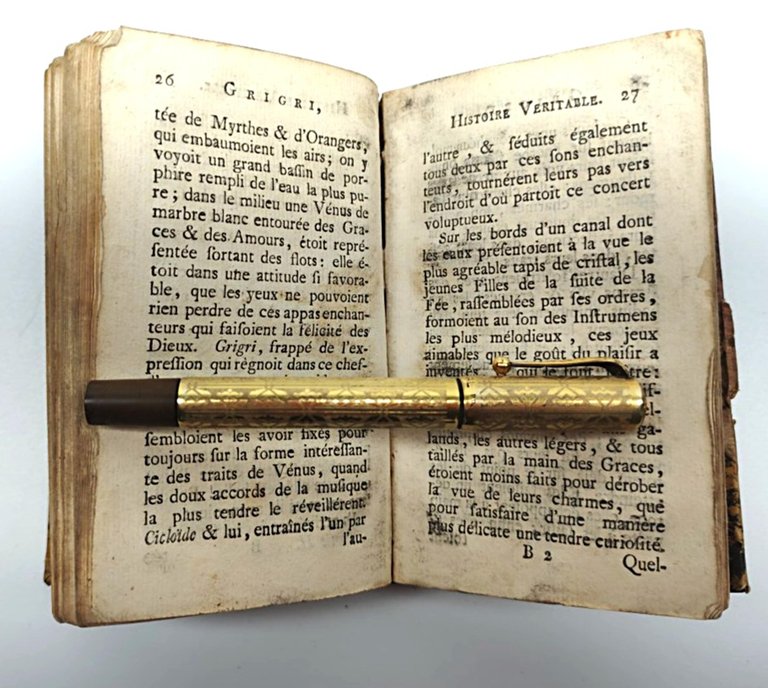 26 GRIGRI,
tée de Myrthes & d'Orangers,
qui embaumoient les airs; on y
voyoit un grand baſſin de por-
phire rempli de l'eau la plus pu-
re; dans le milieu une Vénus de
marbre blanc entourée des Gra-
ces & des Amours, étoit repré-
ſentée ſortant des flots: elle é-
toit dans une attitude ſi favora-
ble, que les yeux ne pouvoient
rien perdre de ces appas enchan-
teurs qui faiſoient la félicité des
Dieux. Grigri, frappé de l'ex-
preſſion qui règnoit dans ce chef-
ſembloient les avoir fixés pour
toujours ſur la forme intéreſſan-
te des traits de Vénus, quand
les doux accords de la muſique
la plus tendre le réveillérent.
Cicloïde & lui, entraînés l'un par
l'au-
HISTOIRE VERITABLE. 27
l'autre, & ſéduits également
tous deux par ces ſons enchan-
teurs, tournérent leurs pas vers
l'endroit d'où partoit ce concert
voluptueux.
Sur les bords d'un canal dont
les eaux préſentoient à la vue le
plus agréable tapis de criſtal, les
jeunes Filles de la ſuite de la
Fée, raſſemblées par ſes ordres,
formoient au ſon des Inſtrumens
les plus mélodieux, ces jeux
aimables que le goût du plaiſir a
inventés
ga-
lands, les autres légers, & tous
taillés par la main des Graces,
étoient moins faits pour dérober
la vue de leurs charmes, que
pour ſatisfaire d'une manière
plus délicate une tendre curioſité.
B 2 Quel-